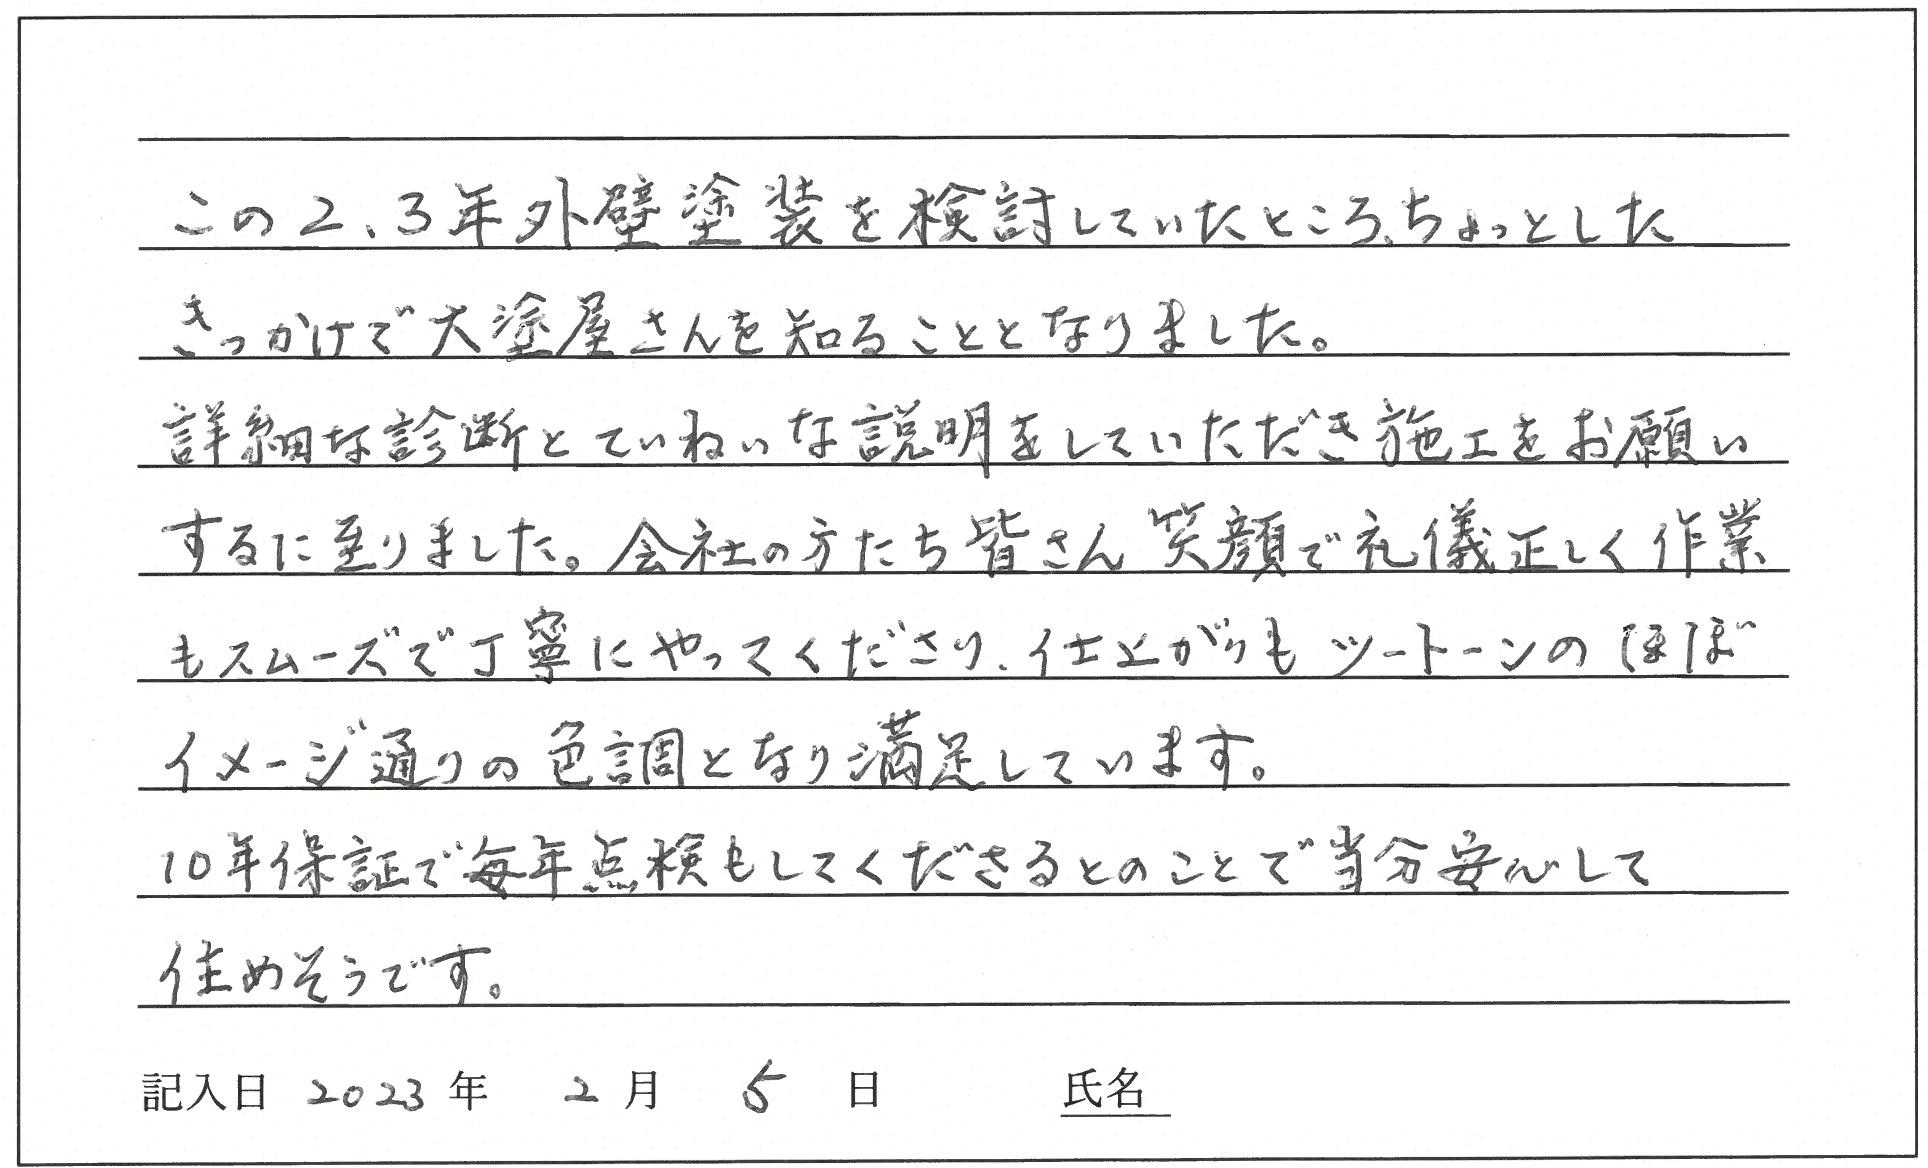 この2、3年外壁塗装を検討していたところ、ちょっとした
きっかけで大塗屋さんを知ることとなりました。
詳細な診断とていねいな説明をしていただき施工をお願い
するに至りました。会社の方たち皆さん笑顔で礼儀正しく作業
もスムーズで丁寧にやってくださり、仕上がりもツートーンのほぼ
イメージ通りの色調となり満足しています。
10年保証で毎年点検もしてくださるとのことで当分安心して
住めそうです。
記入日 2023 年 2 月 5 日 氏名